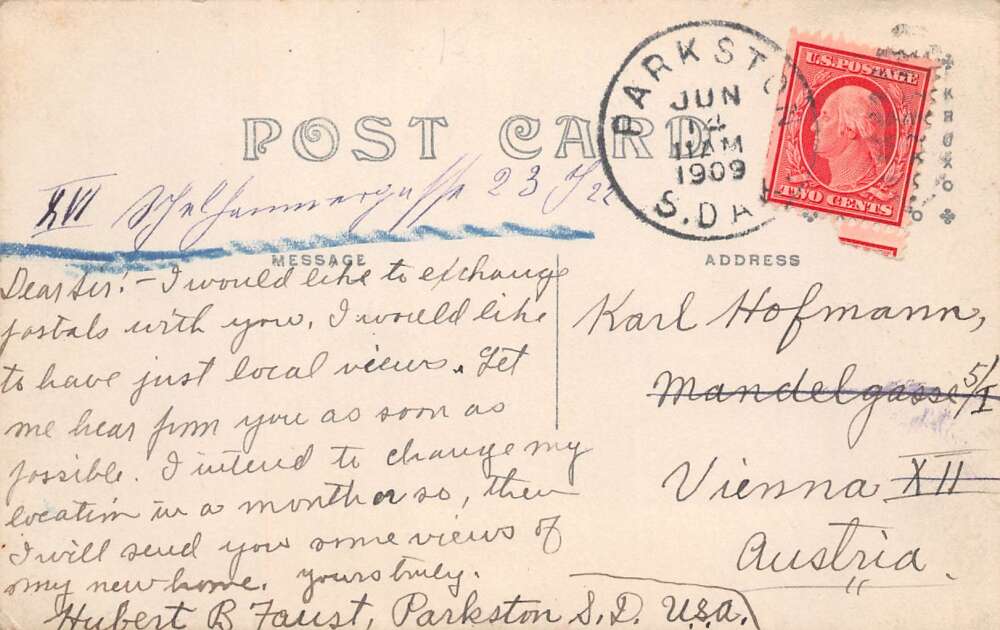 POST CARD
PARKSTON
JUN
14
11 AM
1909
S. DAK.
U.S. POSTAGE
TWO CENTS
XVI 23
MESSAGE
Dear Sir:- I would like to exchange
postals with you, I would like
to have just local views. Let
me hear from you as soon as
possible. I intend to change my
location in a month or so, then
I will send you some views of
my new home. yours truly.
Hubert B Faust, Parkston S.D. U.S.A.
ADDRESS
Karl Hofmann,
Mandelgasse 5/I
Vienna XII
Austria.